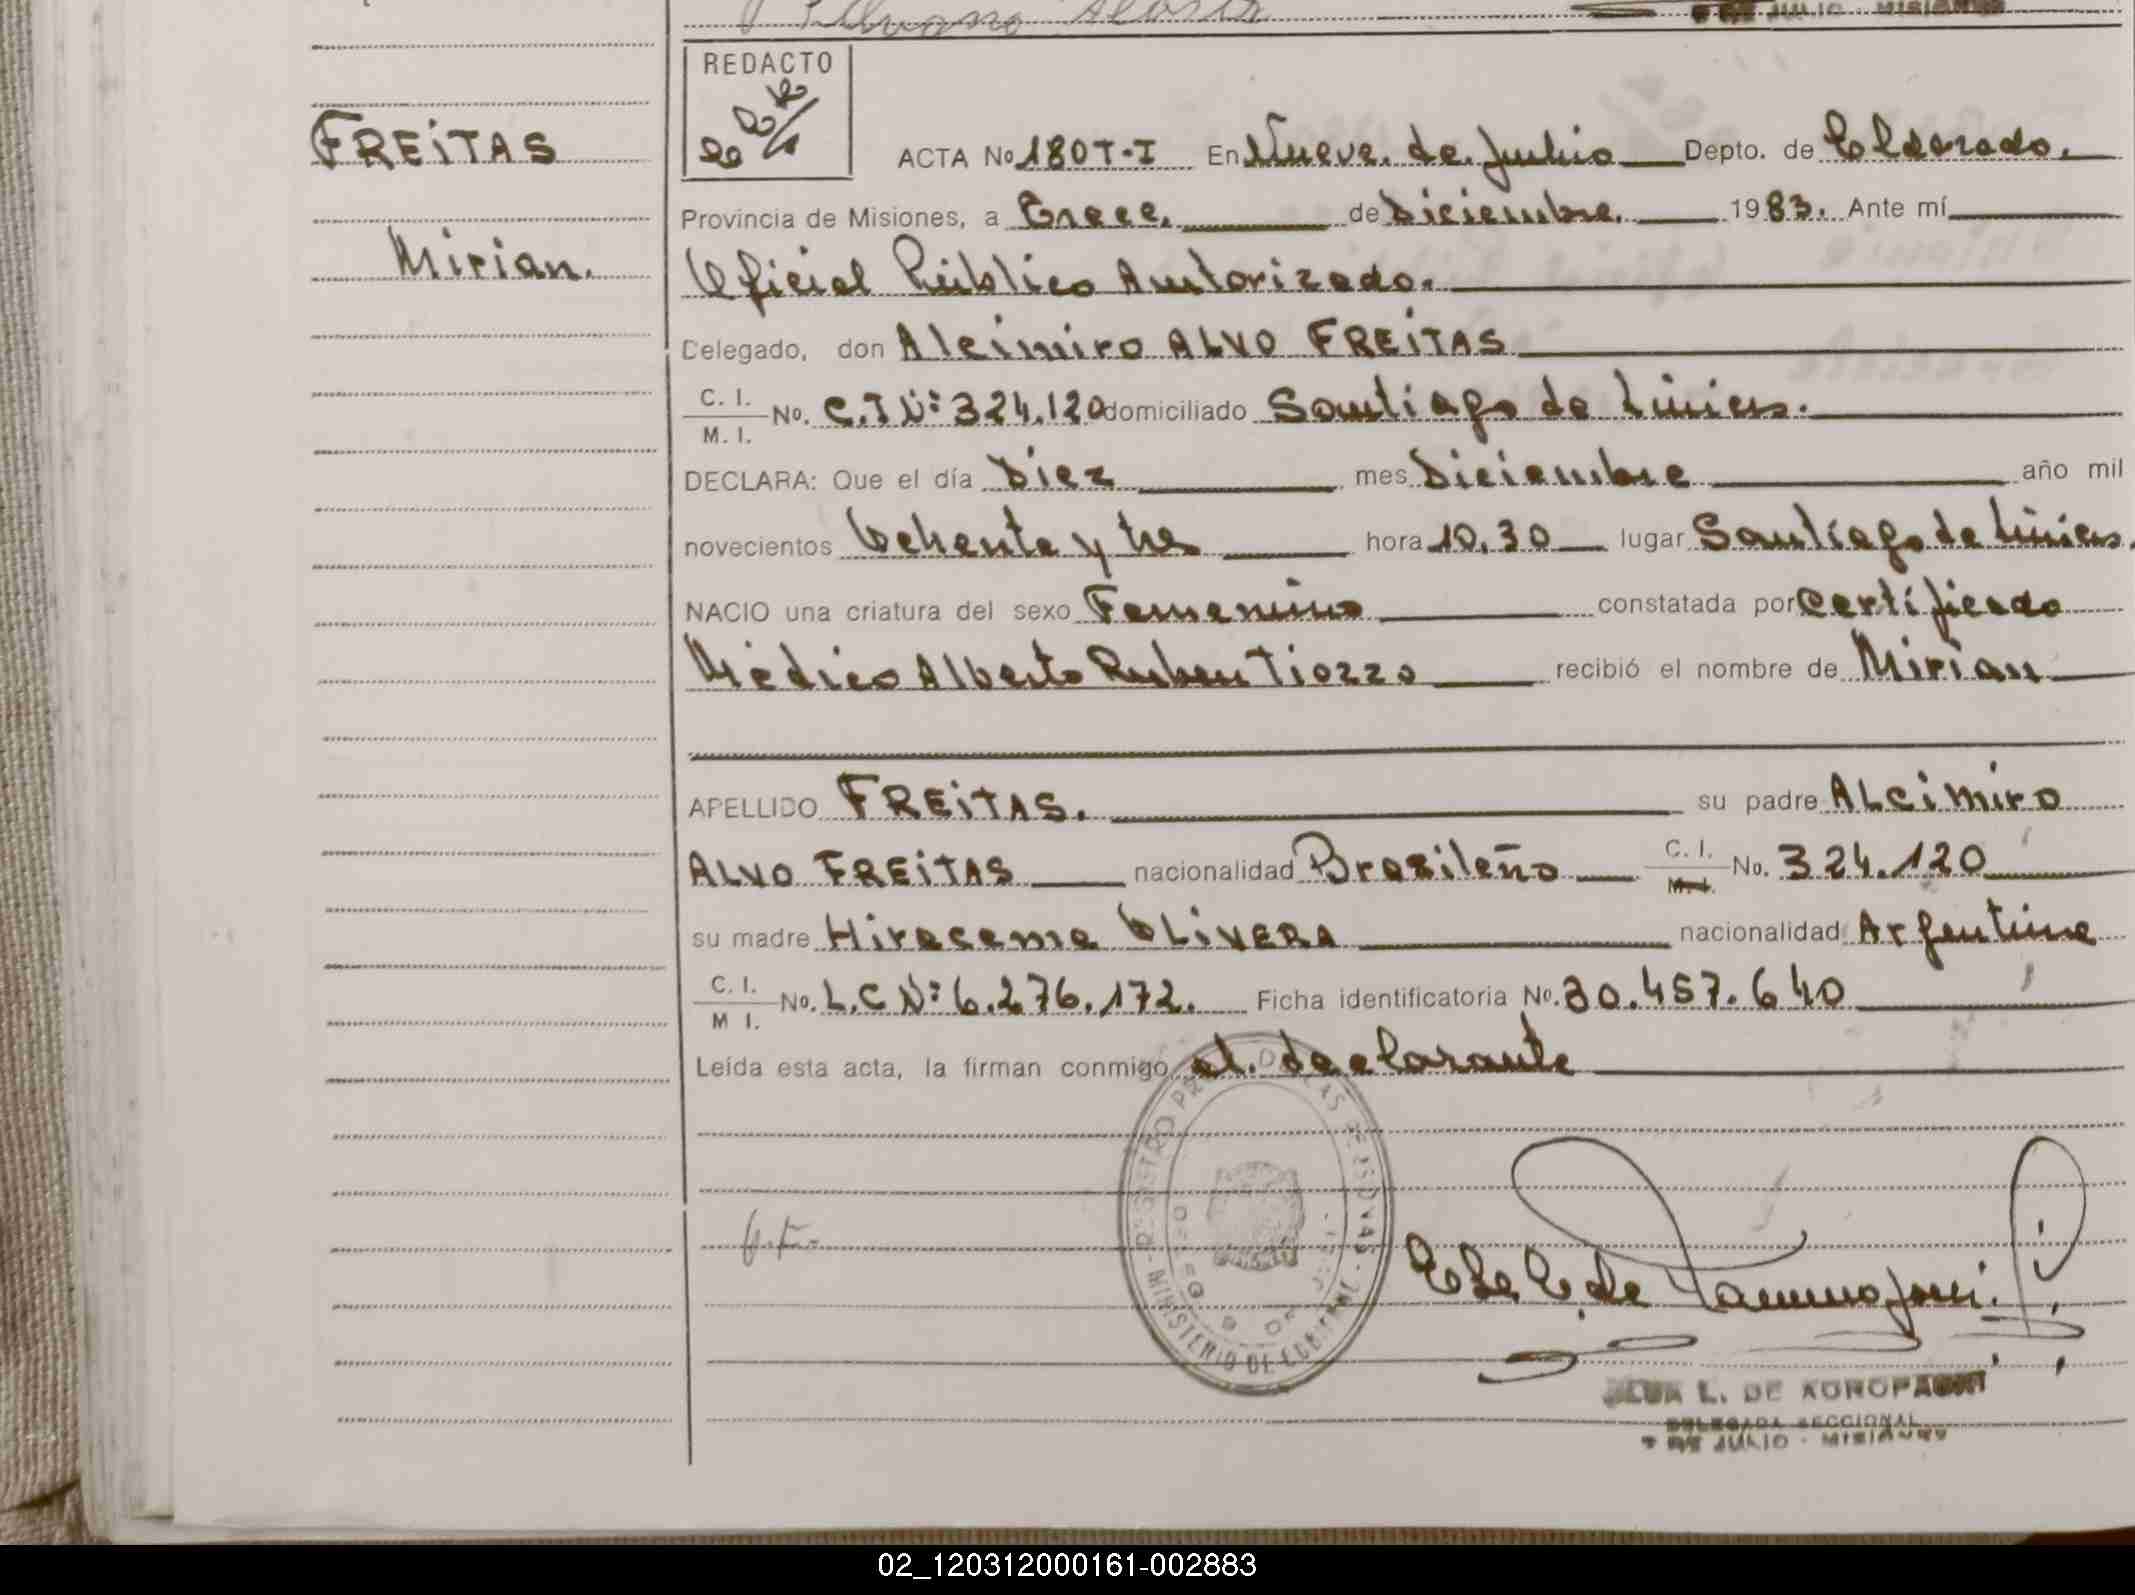 REDACTO
FREITAS
Mirian.
ACTA No 180 T-I En Nueve de Julio Depto. de Eldorado.
Provincia de Misiones, a Trece, de Diciembre, 1983. Ante mí
Oficial Público Autorizado.
Delegado, don Alcimiro ALVO FREITAS
C. I.
M. I. No. C.I Nº 324.120 domiciliado Santiago de Liniers.
DECLARA: Que el día Diez mes Diciembre año mil
novecientos Ochenta y tres hora 10,30 lugar Santiago de Liniers.
NACIO una criatura del sexo Femenino constatada por Certificado
Médico Alberto Ruben Tiozzo recibió el nombre de Mirian
APELLIDO FREITAS. su padre ALCiMiro
ALVO FREITAS nacionalidad Brasileño C. I. M. I. No. 324.120
su madre Hiracema OLIVERA nacionalidad Argentina
C. I.
M I. No. L.C Nº 6.276.172. Ficha identificatoria No. 30.457.640
Leída esta acta, la firman conmigo, el declarante
REGISTRO PROVINCIAL DE LAS PERSONAS - MINISTERIO DE GOBIERNO
L. DE
DELEGADA SECCIONAL
9 DE JULIO - MISIONES
02_120312000161-002883